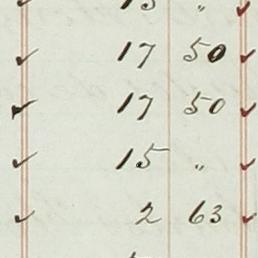 ✓ 17 50 ✓
✓ 17 50 ✓
✓ 15 „ ✓
✓ 2 63 ✓